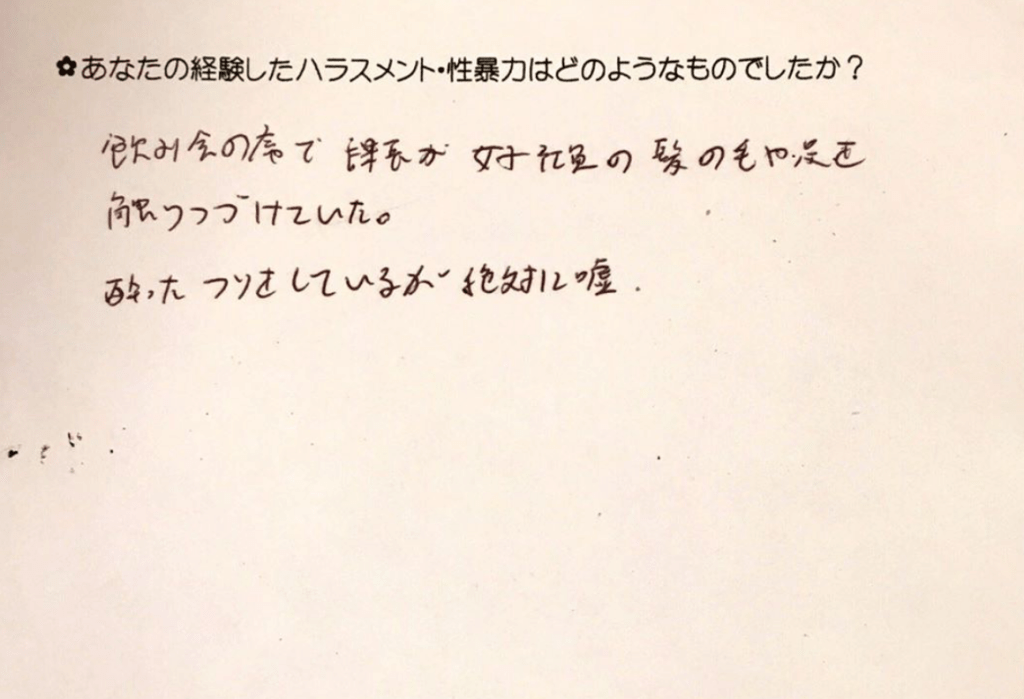 ✿あなたの経験したハラスメント・性暴力はどのようなものでしたか？
飲み会の席で 課長が 女子社員の 髪の毛や足を
触りつづけていた。
酔った フリをしているが 絶対に嘘.